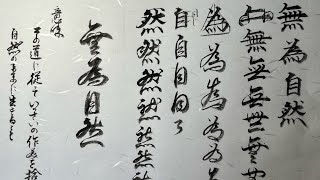 無為自然
無無無
為為為為為為
自自自
然然然然然然然
無為自然
意味
その道に従っていっさいの作為を捨
自然のままに生きること